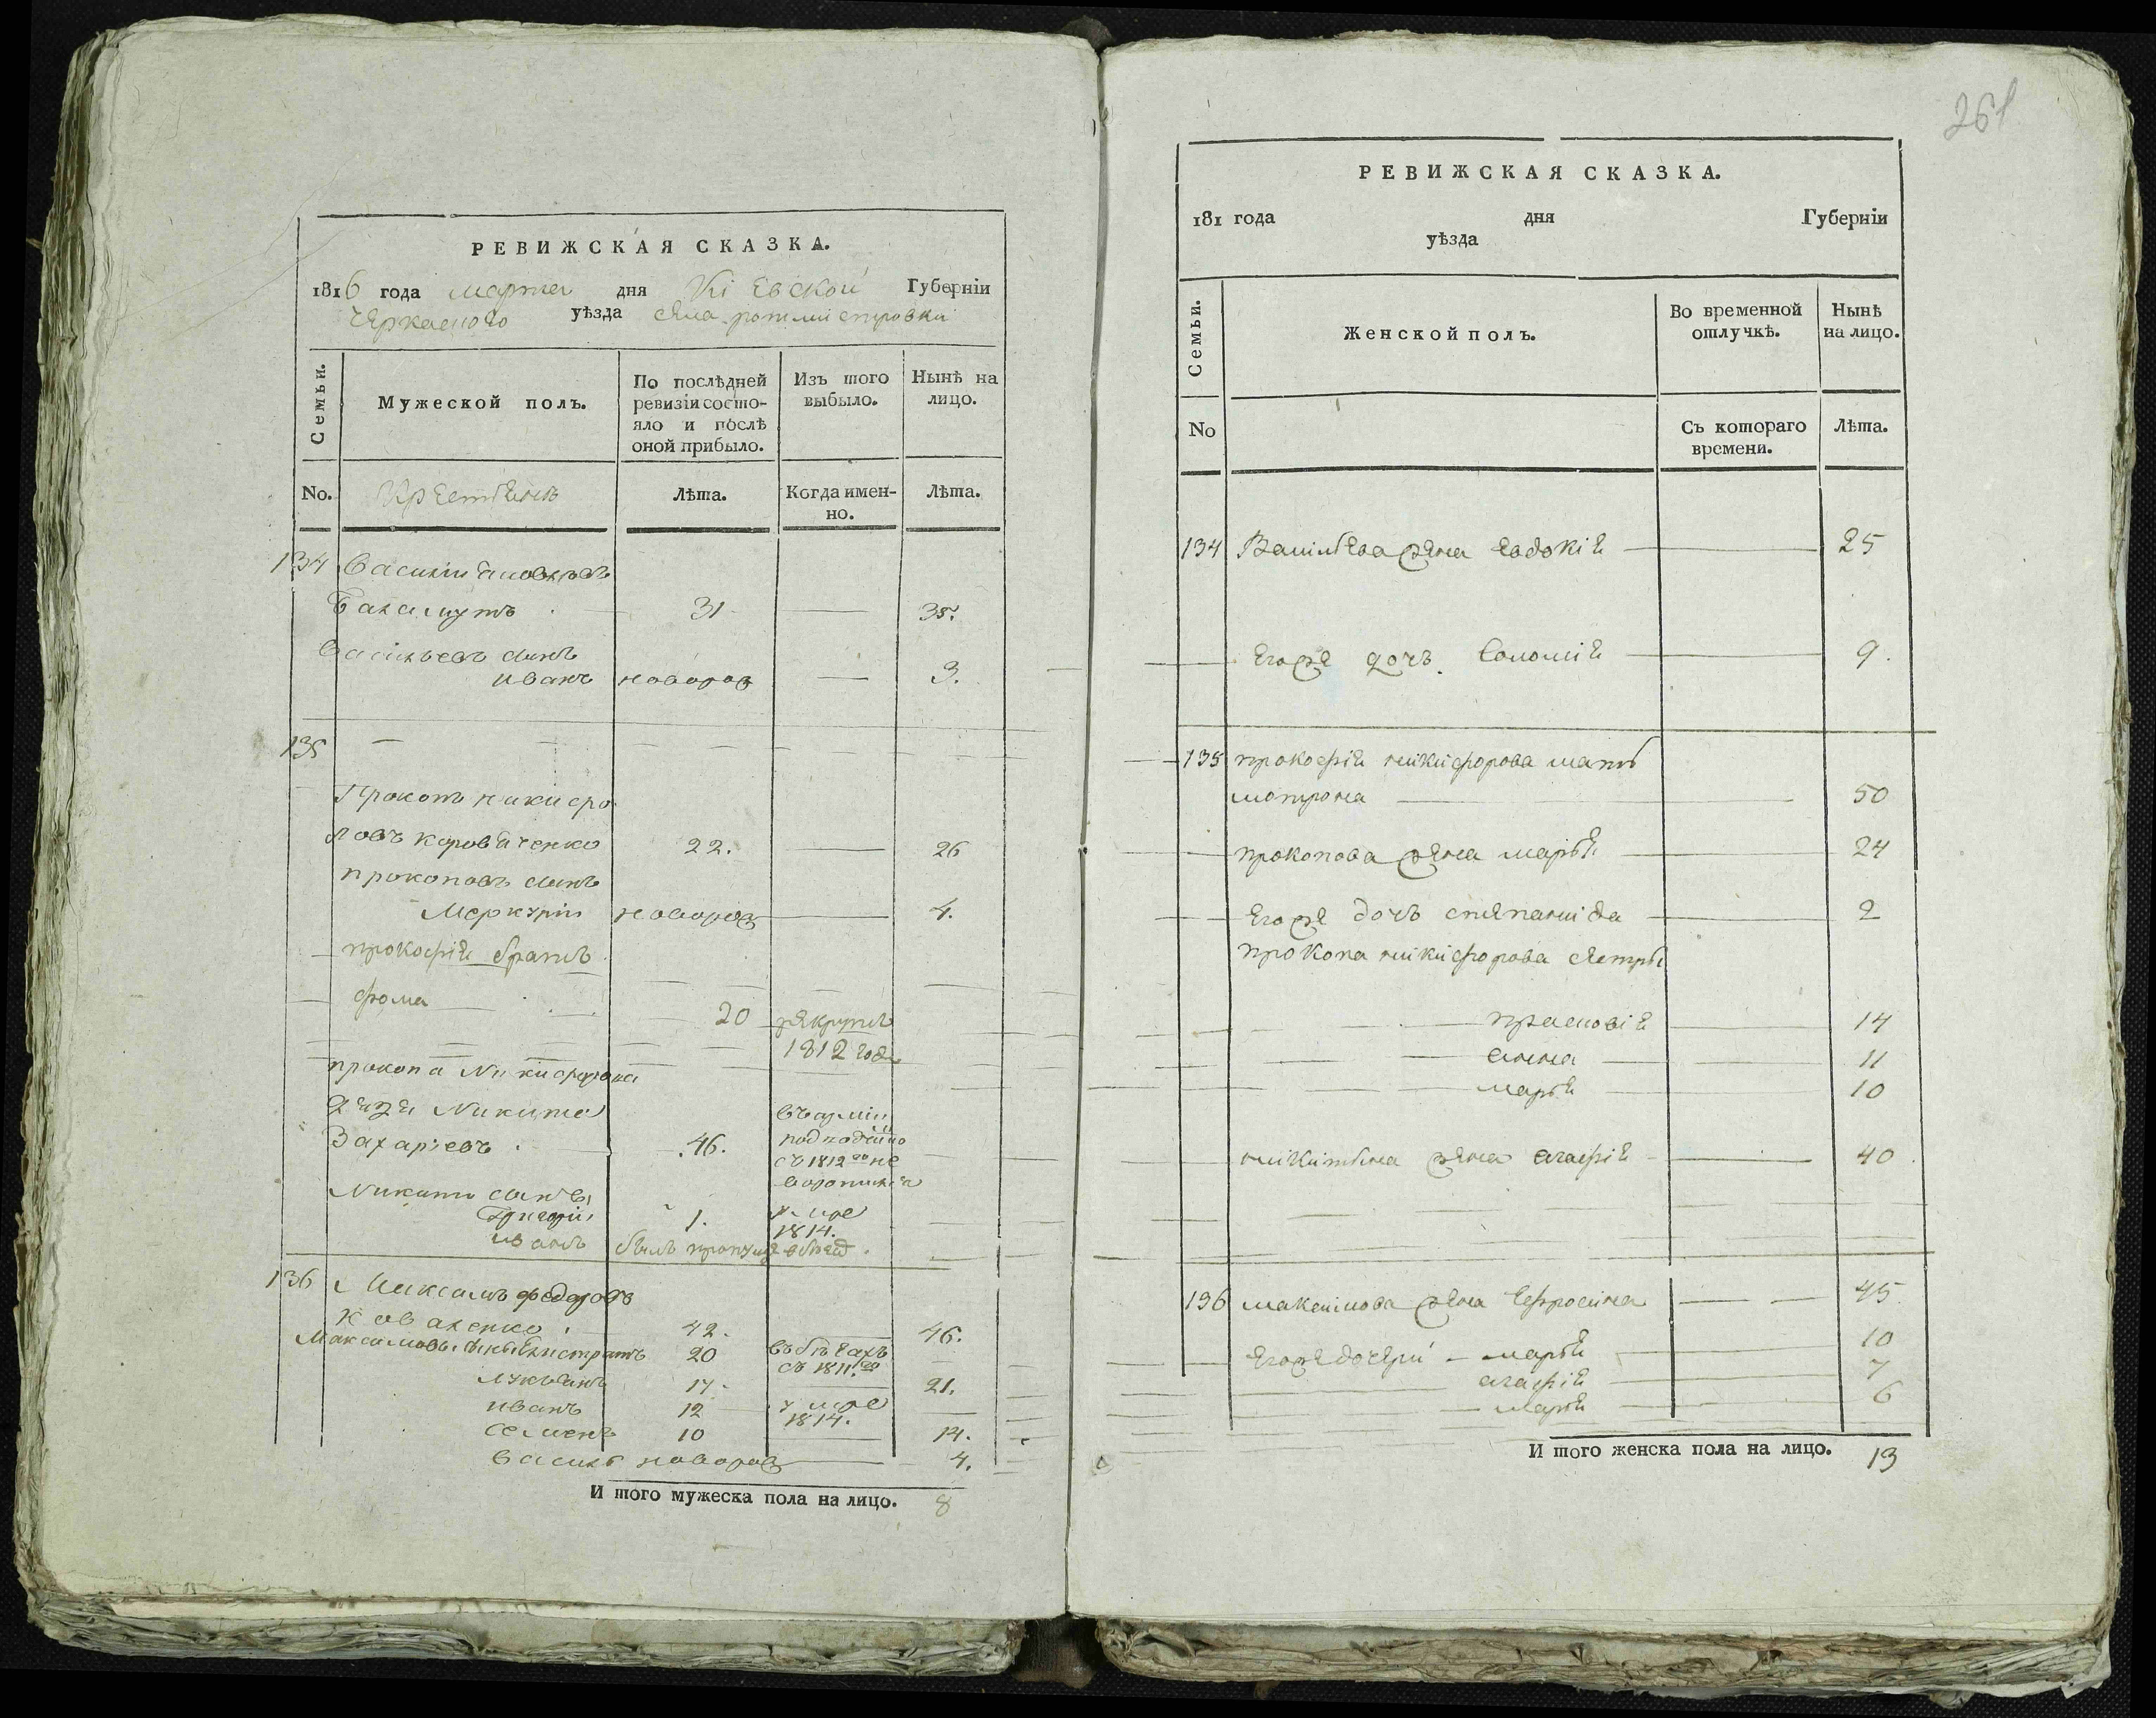 РЕВИЖСКАЯ СКАЗКА.
1816 года марта дня Кіевской Губерніи
Черкаского уѣзда села ротмистровки
Семьи.
Мужеской полъ.
По послѣдней ревизіи состо-
яло и послѣ
оной прибыло.
Изъ того
выбыло.
Нынѣ на
лицо.
No.
Лѣта.
Когда имен-
но.
Лѣта.
134 Василий
Баламутъ 31 35.
Васильевъ сынъ
иванъ новорож 3.
135
Прокопъ никифо
ровъ коровяченко 22. 26
прокоповъ сынъ
Меркурій новорож 4.
прокофія братъ
фома 20 рекрутъ
1812 года
прокопа Никифорова
дядя Никита въ арміи
Захаріевъ 46.
съ 1812 го не
Никиты сынъ
Григорій 1. умре
1814.
иванъ былъ пропущ
136 Максимъ федоровъ
Коваленко 42. 46.
Максимовы сыны 20 въ бѣгахъ
съ 1811 го
лукьянъ 17. 21.
иванъ 12 умре
1814.
семенъ 10 14.
василь новорож 4.
И того мужеска пола на лицо. 8
261
РЕВИЖСКАЯ СКАЗКА.
181 года дня Губерніи
уѣзда
Семьи.
Женской полъ.
Во временной
отлучкѣ.
Нынѣ
на лицо.
No
Съ котораго
времени.
Лѣта.
134 Василѣва жена евдокія 25
Егоже дочъ соломія 9.
135 прокофія никифорова мать
мотрона 50
прокопова жена марья 24
Егоже дочъ степанида 2
прокопа никифорова сестры
прасковія 14
анна 11
марья 10
никитина жена агафія 40
136 максимова жена Ефросина 45
Егоже дочери марья 10
агафія 7
марья 6
И того женска пола на лицо. 13